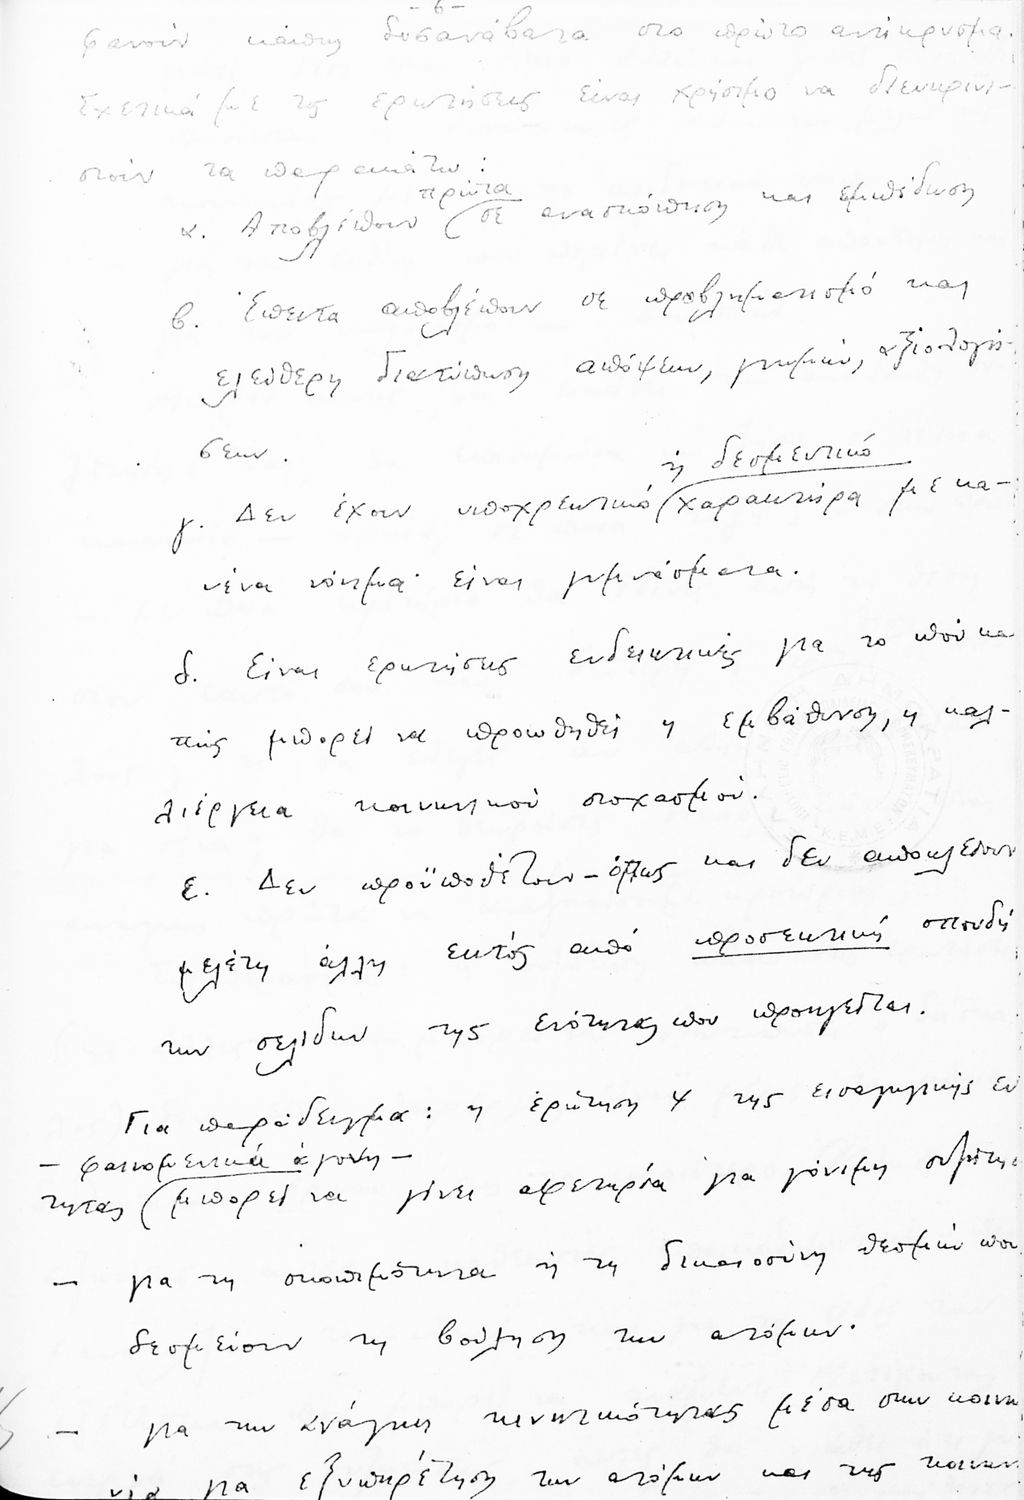 -6-
φανούν κάπως δυσανάβατα στο πρώτο αντίκρυσμα.
Σχετικά με τις ερωτήσεις είναι χρήσιμο να διευκρινι-
στούν τα παρακάτω:
πρώτα
α. Αποβλέπουν σε ανασκόπηση και εμπέδωση
β. Έπειτα αποβλέπουν σε προβληματισμό και
ελεύθερη διατύπωση απόψεων, γνωμών, αξιολογή-
σεων.
ή δεσμευτικό
γ. Δεν έχουν υποχρεωτικό χαρακτήρα με κα-
νένα νόημα· είναι γυμνάσματα.
δ. Είναι ερωτήσεις ενδεικτικές για το πού κα
πώς μπορεί να προωθηθεί η εμβάθυνση, η καλ-
λιέργεια κοινωνικού στοχασμού.
ε. Δεν προϋποθέτουν – όμως και δεν αποκλείουν
μελέτη άλλη εκτός από προσεκτική σπουδή
των σελίδων της ενότητας που προηγείται.
Για παράδειγμα: η ερώτηση 4 της εισαγωγικής εν
– φαινομενικά άγονη –
τητας μπορεί να γίνει αφετηρία για γόνιμη συζήτησ
– για τη σκοπιμότητα ή τη δικαιοσύνη θεσμών που
δεσμεύουν τη βούληση των ατόμων·
– για την ανάγκη κινητικότητας μέσα στην κοινω
νία για εξυπηρέτηση των ατόμων και της κοινων
Κ.Ε.Μ.Ε.